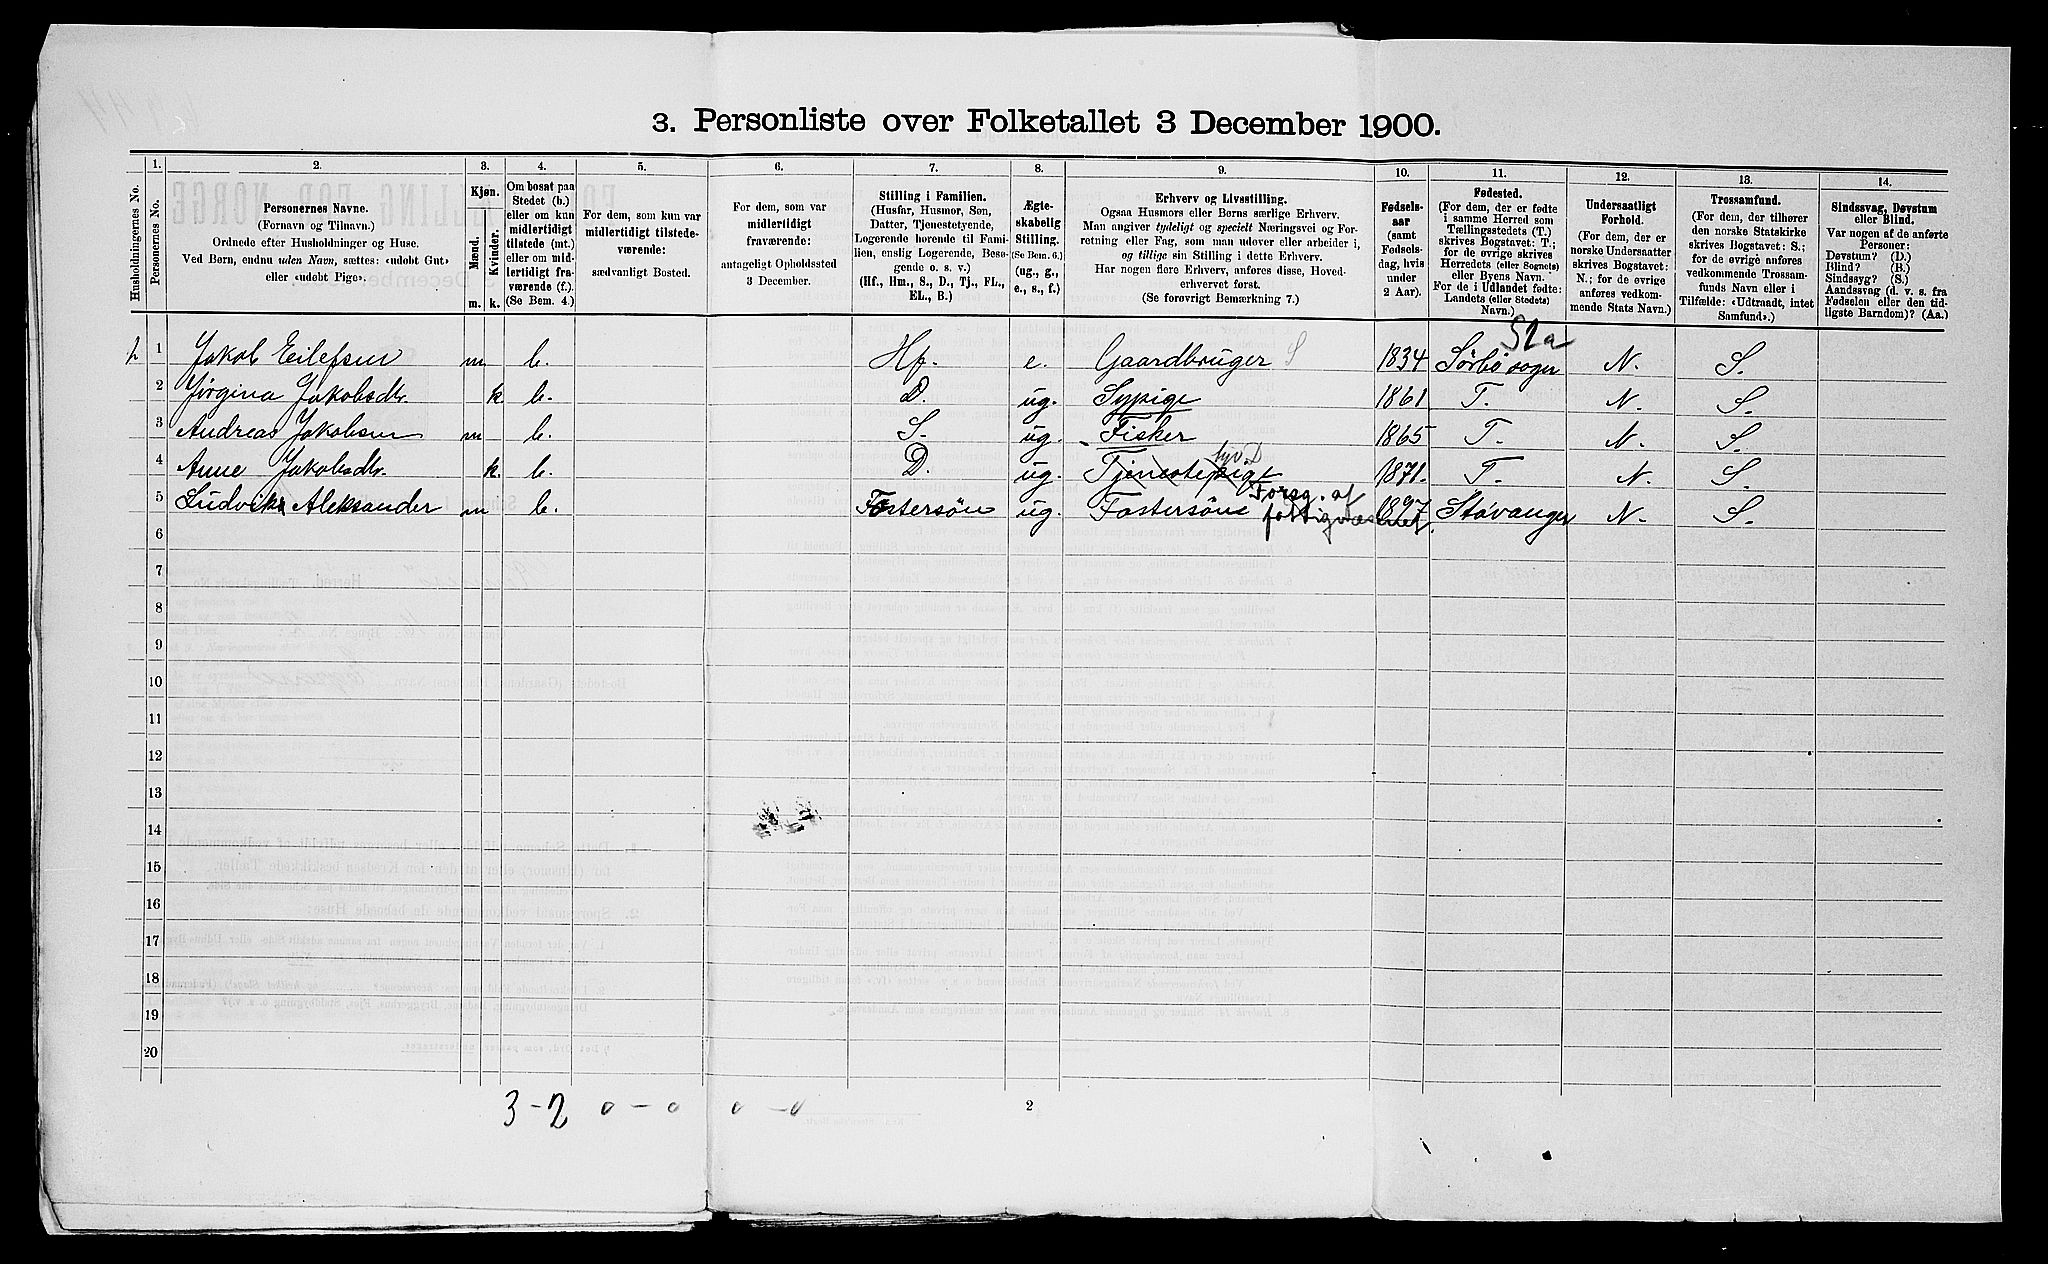 3. Personliste over Folketallet 3 December 1900.
Husholdningernes No.
1. Personernes No.
2. Personernes Navne.
(Fornavn og Tilnavn.)
Ordnede efter Husholdninger og Huse.
Ved Børn, endnu uden Navn, sættes: «udøbt Gut»
eller «udøbt Pige».
3. Kjøn.
Mænd. Kvinder.
m. k.
4. Om bosat paa
Stedet (b.)
eller om kun
midlertidigt
tilstede (mt.)
eller om mid-
lertidigt fra-
værende (f.)
(Se Bem. 4.)
5. For dem, som kun var
midlertidigt tilstede-
værende:
sædvanligt Bosted.
6. For dem, som var
midlertidigt
fraværende:
antageligt Opholdssted
3 December.
7. Stilling i Familien.
(Husfar, Husmor, Søn,
Datter, Tjenestetyende,
Logerende hørende til Fami-
lien, enslig Logerende, Besø-
gende o. s. v.)
(Hf., Hm., S., D., Tj., FL.,
EL., B.)
8. Ægte-
skabelig
Stilling.
(Se Bem. 6.)
(ug., g.,
e., s., f.)
9. Erhverv og Livsstilling.
Ogsaa Husmors eller Børns særlige Erhverv.
Man angiver tydeligt og specielt Næringsvei og For-
retning eller Fag, som man udøver eller arbeider i,
og tillige sin Stilling i dette Erhverv.
Har nogen flere Erhverv, anføres disse, Hoved-
erhvervet først.
(Se forøvrigt Bemærkning 7.)
10. Fødsels-
aar
(samt
Fødsels-
dag, hvis
under
2 Aar).
11. Fødested.
(For dem, der er fødte
i samme Herred som
Tællingsstedets (T.)
skrives Bogstavet: T.;
for de øvrige skrives
Herredets (eller Sognets)
eller Byens Navn.
For de i Udlandet fødte:
Landets (eller Stedets)
Navn.)
12. Undersaatligt
Forhold.
(For dem, der er
norske Undersaatter
skrives Bogstavet:
N.; for de øvrige
anføres vedkom-
mende Stats Navn.)
13. Trossamfund.
(For dem, der tilhører
den norske Statskirke
skrives Bogstavet: S.;
for de øvrige anføres
vedkommende Trossam-
funds Navn eller i
Tilfælde: «Udtraadt, intet
Samfund».)
14. Sindssvag, Døvstum
eller Blind.
Var nogen af de anførte
Personer:
Døvstum? (D.)
Blind? (B.)
Sindssyg? (S.)
Aandssvag (d. v. s. fra
Fødselen eller den tid-
ligste Barndom)? (Aa.)
1 Jakob Eilefsen m b. Hf. e. Gaardbruger S 1834 Sørbø sogn N. S.
2 Jørgina Jakobsdtr. k b. D. ug. Sypige 1861 T. N. S.
3 Andreas Jakobsen m b. S. ug. Fisker 1865 T. N. S.
4 Anne Jakobsdtr. k. b. D. ug. Tjenestepige 1871. T. N. S.
Forsg. af
5 Ludvik Aleksander m b. Fostersøn ug. Fostersøn fattigvæsenet 1897 Stavanger N. S.
6
7
8
9
10
11
12
13
14
15
16
17
18
19
20
3 - 2 0 - 0 0 - 0
2